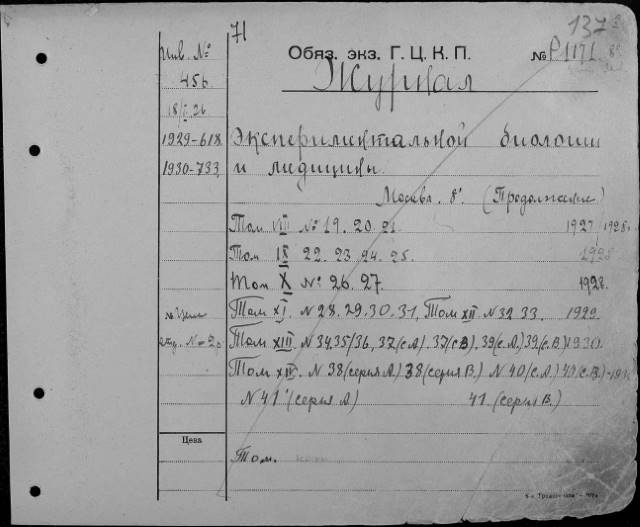 71
137
Обяз. экз. Г. Ц. К. П.
№ Р1171
Журнал
Инв. №
456
18/I 26
1929-618
1930-733
Экспериментальной биологии
и медицины.
Москва. 8° (Продолжение)
Том VIII № 19. 20. 21. 1927/1928.
Том IX 22. 23. 24. 25. 1928
Том X № 26. 27. 1928.
Том XI. N 28. 29. 30. 31. Том XII. N 32 33. 1929
Том XIII N 34, 35/36, 37(с.А) 37(с.В). 39(с.А.) 39(с.В.) 1930.
Том XIV. N 38(серия А.) 38(серия В.) N 40(с.А.)
N 41 (серия А.) 41. (серия В.)
Цена
Том.